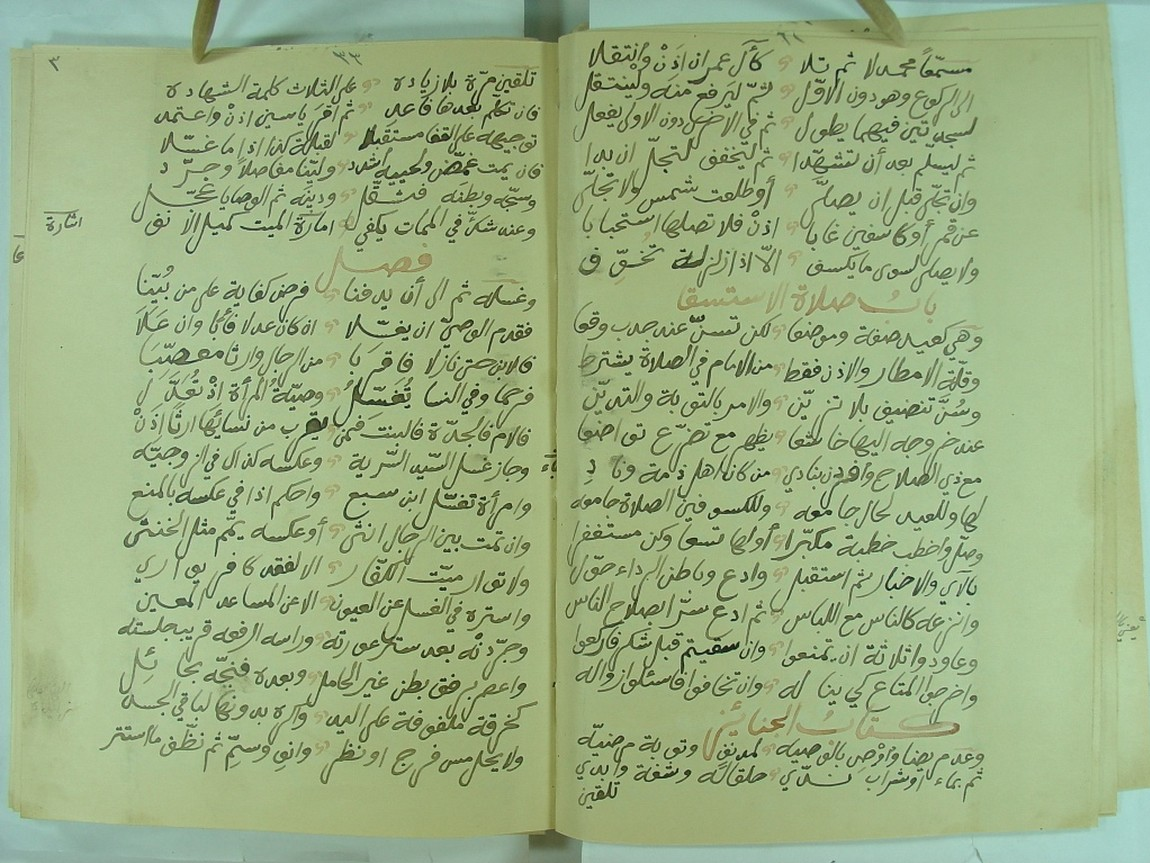 مسمّعاً محمدلا ثم تلا كآل عمران اذن وانتقلا
الى الركوع وهو دون الاوّل ثمّ ليرفع منه ولينتقل
لسجدتين فيهما يطول ثم في الاخرى دون الاولى يفعل
ثم ليسلّم بعد أن تشهّدا ثم ليخفف لتجلّ ان بدا
وان تجلّى قبل ان يصلّى أو طلعت شمس ولا تجلّى
عن قمر أو كاسفين غابا اذن فلا تصلها استحبابا
ولا يصلى لسوى ما يكسف الّا اذا زلزلة تخوّف
بابُ صلاة الاستسقا
وهي كعيد صفة وموضعا لكن تسنّ عند جدب وقعا
وقلّة الامطار والاذن فقط من الامام في الصلاة يشترط
وسُنَّ تنضيف بلا تزيّن والامر بالتوبة والتديّن
عند خروجه اليها خاشعا يظهر مع تضرّع تواضعا
مع ذي الصلاح من كان اهل ذمة وناد
لها وللعيد لحال جامعه وللكسوفين الصلاة جامعه
وصلّ واخطب خطبة مكبّرا أولها تسعا وكن مستغفرا
بالآي والاخبار ثم استقبل وادع وباطن الرداء حوّل
وانزعه كالناس مع اللباس ثم ادع سرّا بصلاح الناس
وعاودوا ثلاثة ان يمنعوا وان سقيتم قبل شكر فاركعوا
واخرجوا المتاع كي ينا له وان تخافوا فاسئلوا زواله
كتابُ الجنائز
وعد مريضا وأوص بالوصيه لمدنف وتوبة مرضيّه
ثم بماء او شراب ندّي حلقا له وشفة وابدي
تلقين
٣٣
٣
تلقين مرّة بلا زياده على الثلاث كلمة الشهاده
فان تكلّم بعدها فاعد ثم اقرَ ياسين اذن واعتمد
توجيهه على القفا مستقبلا لقبلة كذا اذا ما غسّلا
فان يمت غمّض ولحييه اشدد وليّنا مفاصلاً وجرّد
وسجّه وبطنه فثقّل ودينه ثم الوصايا عجّل
وعند شكّ في الممات يكفي امارة الميت كميل الانف
اشارة
فصل
وغسله ثم الى أن يدفنا فرض كفاية على من بُيّنا
فقدم الوصيّ ان يغسّلا ان كان عدلا فأبًا وان علا
فالابن حتى نازلا فاقربا من الرجال وارثا معصّبا
فرحما وفي النسا تُغسّلُ وصيّة المرأة اذ تُعدَّل
فالام فالجدّة فالبنت فمن يقرب من نسائها ارثًا اذن
وجاز غسل السيّد السّرية وعكسه كذاك في الزوجيّه
وامرأة تغسّل ابن سبع واحكم اذا في عكسه بالمنع
وان تمت بين الرجال انثى أو عكسه يمّم مثل الخنثى
ولا توار ميّت الكفّار الا لفقد كافر يواري
واستره في الغسل عن العيون الا عن المساعد المعين
وجرّدنْه بعد ستر عورته وراسه ارفعه قريب جلسته
واعصر برفق بطن غير الحامل وبعده فنجّه بحائل
كخرقة ملفوفة على اليد واكره بدونها لباقي الجسد
ولا يحل مس فرج او نظر وانو وسمّ ثم نظّف ما استتر